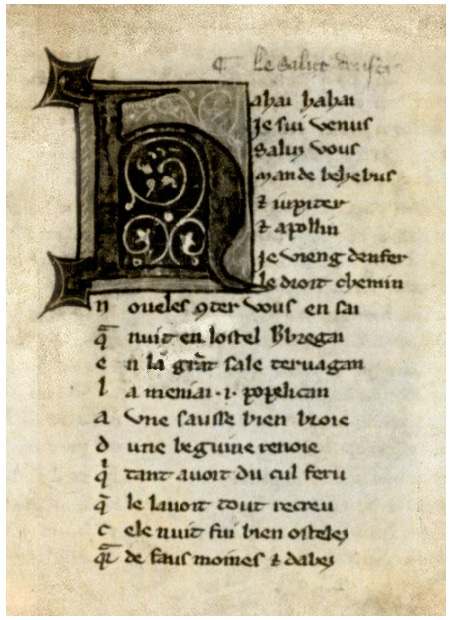 ¶ Le salut denfer
Hahai hahai
Je sui venus
Saluz vous
mande belzebus
⁊ iupiter
⁊ apollin
Je vieng denfer
le droit chemin
noueles ꝯter vous en sai
q̄ nuit en lostel
en la grāt sale teruagan
la meniai ·i· popelican
a vne sausse bien broie
dune beguine renoie
qͥ tant auoit du cul feru
q̄ le lauoit tout recreu
cele nuit fui bien ostelez
q̄r de faus moines ⁊ dabez